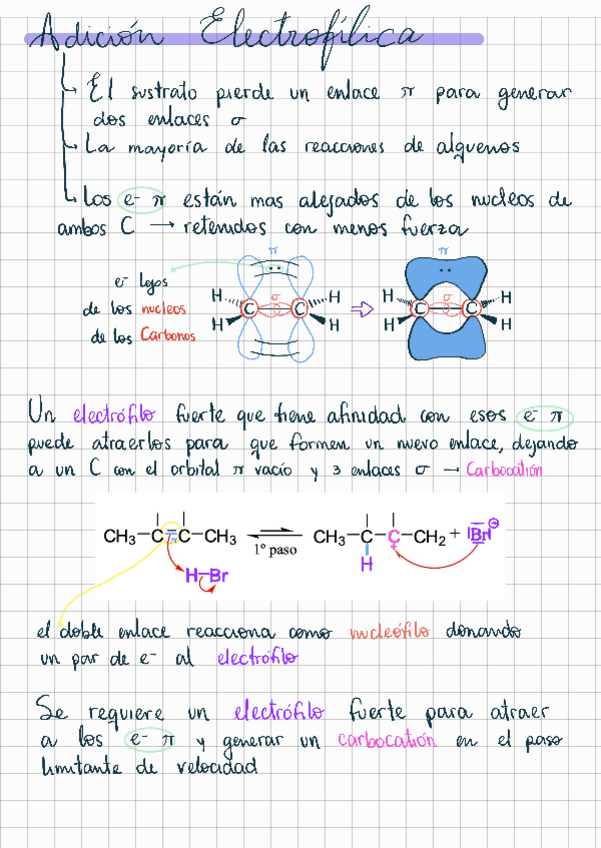 Adición Electrofílica
El sustrato pierde un enlace π para generar
dos enlaces σ
La mayoría de las reacciones de alquenos
Los e⁻ π están mas alejados de los nucleos de
ambos C → retenidos con menos fuerza
e⁻ lejos
de los nucleos
de los Carbonos
π
H H
C σ C
H H
π
H H
C σ C
H H
Un electrófilo fuerte que tiene afinidad con esos e⁻ π
puede atraerlos para que formen un nuevo enlace, dejando
a un C con el orbital π vacío y 3 enlaces σ → Carbocatión
CH₃–C=C–CH₃ ⇌ CH₃–C–C–CH₂ + |Br|⊖
π
1º paso
+
H–Br
H
el doble enlace reacciona como nucleófilo donando
un par de e⁻ al electrófilo
Se requiere un electrófilo fuerte para atraer
a los e⁻ π y generar un carbocatión en el paso
limitante de velocidad